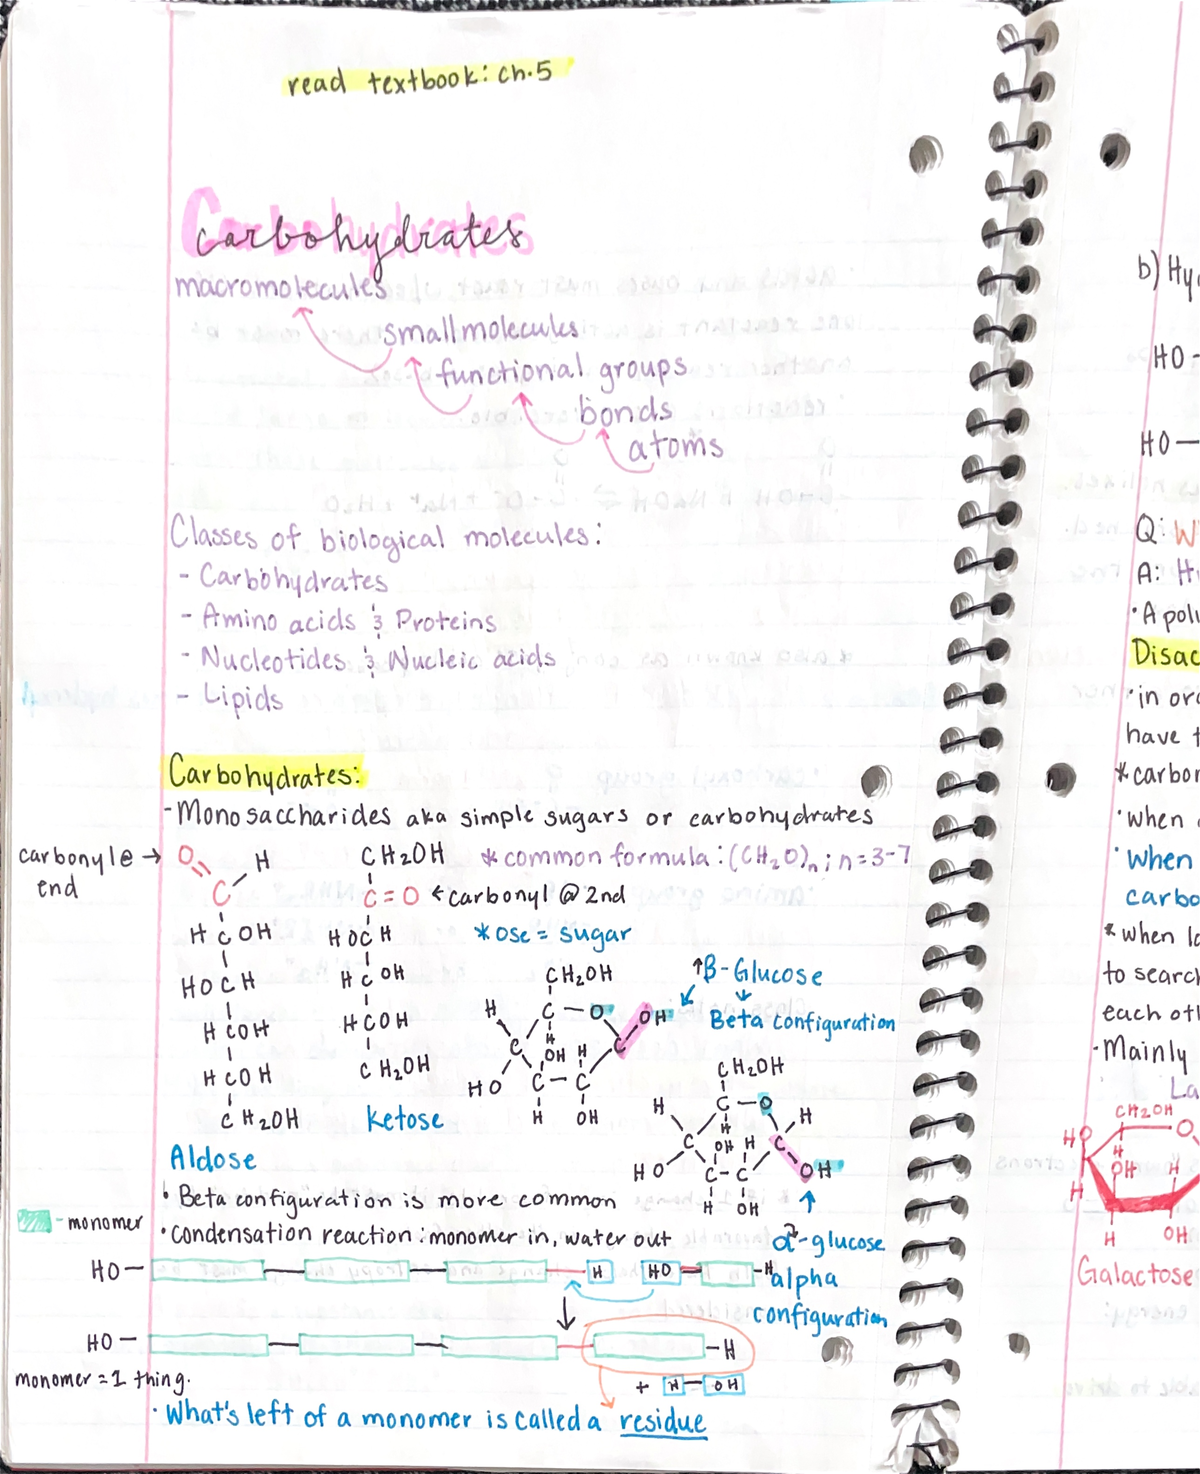 read textbook: ch.5
Carbohydrates
macromolecules
small molecules
functional groups
bonds
atoms
Classes of biological molecules:
- Carbohydrates
- Amino acids & Proteins
- Nucleotides & Nucleic acids
- Lipids
Carbohydrates:
- Monosaccharides aka simple sugars or carbohydrates
carbonyl @ → O H CH2OH * common formula: (CH2O)n ; n=3-7
end C C=O ← carbonyl @ 2nd
H C OH HO C H * ose = sugar
HO C H H C OH CH2OH ↑β-Glucose
H C OH H C OH H C O OH Beta configuration
H C OH CH2OH C H OH H C
CH2OH Ketose HO C C
H OH
CH2OH
H C O H
C H OH H C
HO C C OH
H OH
Aldose
• Beta configuration is more common
- monomer
• condensation reaction: monomer in, water out
α-glucose
HO H HO H alpha
configuration
HO H
monomer = 1 thing.
+ H OH
• What's left of a monomer is called a residue
b) Hy
HO
HO
Q: W
A: H
• A poli
Disac
• in or
have t
* carbo
• when
• when
carbo
* when lo
to search
each ot
- Mainly
La
CH2OH
HO O
H OH H
H
H OH
Galactose